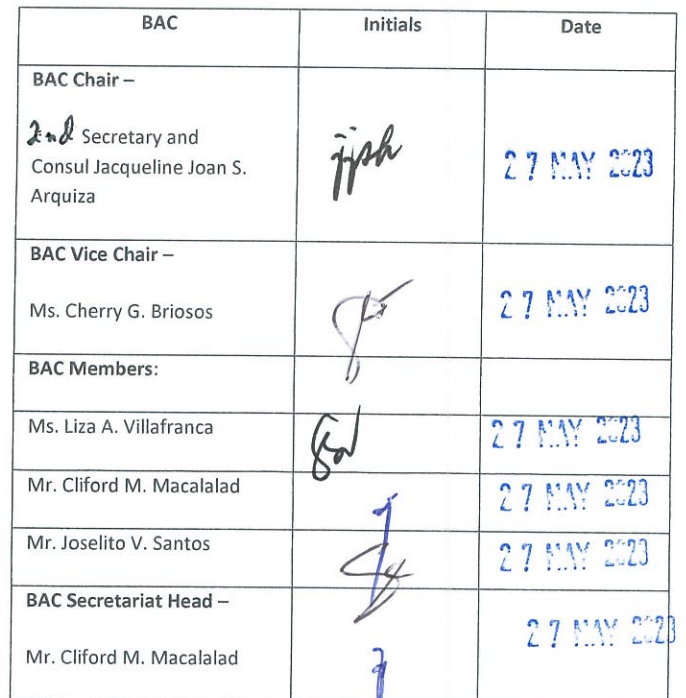 BAC Initials Date
BAC Chair –
2nd Secretary and
Consul Jacqueline Joan S.
Arquiza
27 MAY 2023
BAC Vice Chair –
Ms. Cherry G. Briosos
27 MAY 2023
BAC Members:
Ms. Liza A. Villafranca 27 MAY 2023
Mr. Cliford M. Macalalad 27 MAY 2023
Mr. Joselito V. Santos 27 MAY 2023
BAC Secretariat Head –
27 MAY 2023
Mr. Cliford M. Macalalad